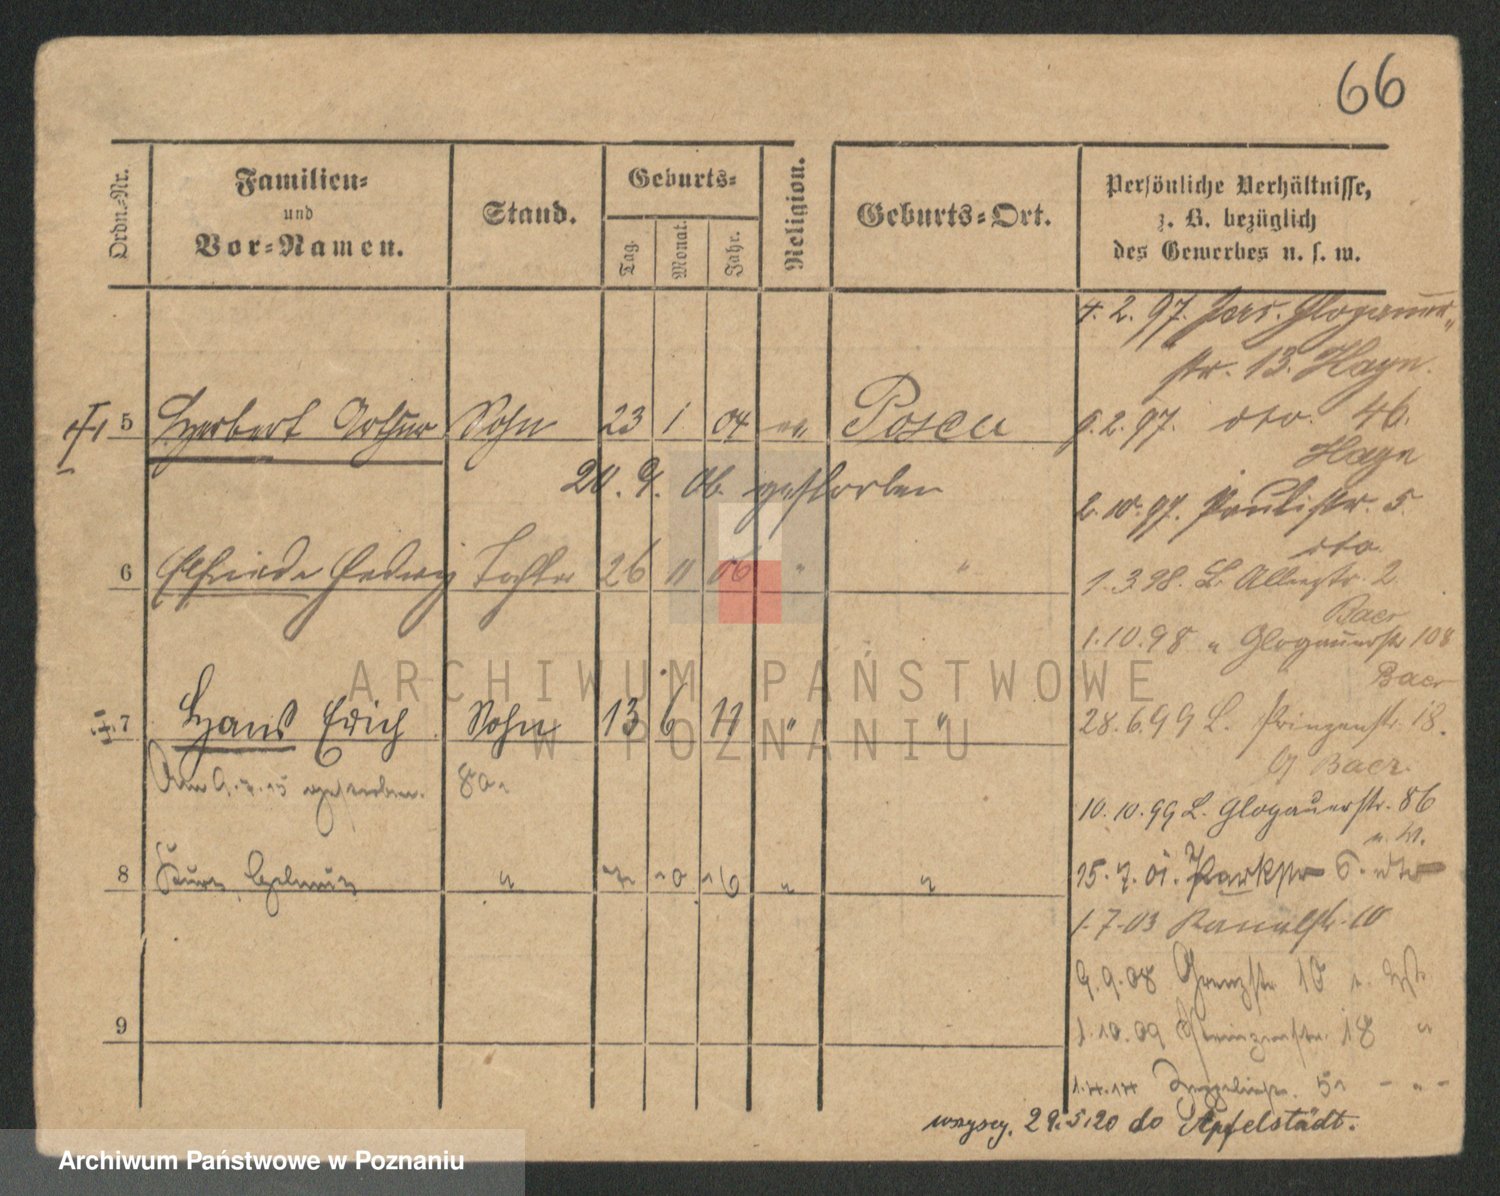 66
Ordn.-Nr.
Familien-
und
Vor-Namen.
Stand.
Geburts-
Tag.
Monat.
Jahr.
Religion.
Geburts-Ort.
Persönliche Verhältnisse,
z. B. bezüglich
des Gewerbes u. s. w.
4. 2. 97. Jers. Glogauer
str. 13. Hayn.
5 Herbert Arthur Sohn 23 1 04 ev Posen
9. 2. 97. dto. 46.
Hayn
20. 9. 06. gestorben
2. 10. 97. Paulistr. 5.
dto.
6 Elfriede Hedwig Tochter 26 11 06 " "
1. 3. 98. L. Alleestr. 2.
Baer
1. 10. 98 " Glogauerstr 108
Baer
7 Hans Erich Sohn 13 6 11 " "
28. 6. 99 L. Prinzenstr. 18.
Baer.
Am 9. 7. 15 gestorben.
10. 10. 99 L. Glogauerstr. 86
u. W.
8 Kurt Helmut " " "
15. 7. 01. Parkstr
1. 7. 03 Kanalstr. 10
9. 9. 08 Grenzstr 10
9
1. 10. 09 18 "
29. 5. 20 do Apfelstädt.
ARCHIWUM PAŃSTWOWE
W POZNANIU
Archiwum Państwowe w Poznaniu